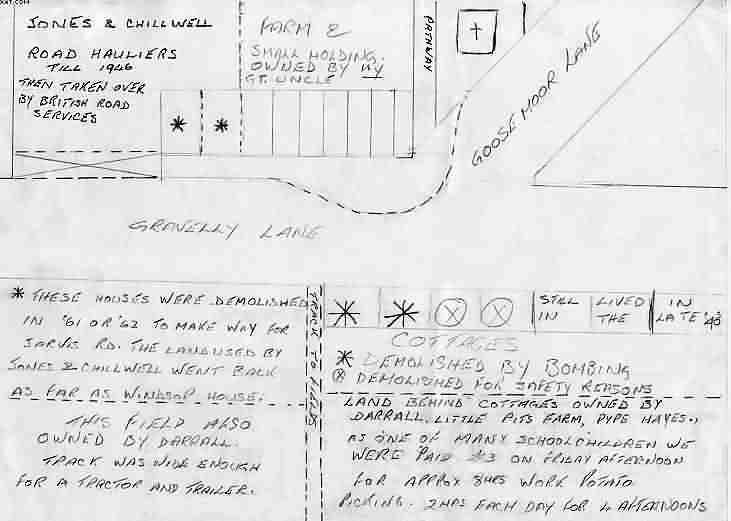 JONES & CHILLWELL
ROAD HAULIERS
TILL 1946
THEN TAKEN OVER
BY BRITISH ROAD
SERVICES
FARM &
SMALL HOLDING.
OWNED BY MY
GT. UNCLE
PATHWAY
GOOSEMOOR LANE
GRAVELLY LANE
* THESE HOUSES WERE DEMOLISHED
IN '61 OR '62 TO MAKE WAY FOR
JARVIS RD. THE LAND USED BY
JONES & CHILLWELL WENT BACK
AS FAR AS WINDSOR HOUSE.
THIS FIELD ALSO
OWNED BY DARRALL.
TRACK WAS WIDE ENOUGH
FOR A TRACTOR AND TRAILER.
TRACK TO FIELDS
STILL LIVED IN
IN THE LATE
COTTAGES
* DEMOLISHED BY BOMBING
ⓧ DEMOLISHED FOR SAFETY REASONS
LAND BEHIND COTTAGES OWNED BY
DARRALL. LITTLE PITS FARM, PYPE HAYES.
AS ONE OF MANY SCHOOLCHILDREN WE
WERE PAID ON FRIDAY AFTERNOON
FOR APPROX 8HRS WORK POTATO
PICKING. 2HRS EACH DAY FOR 4 AFTERNOONS